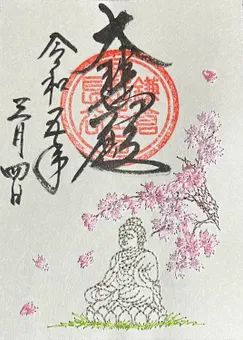 大悲殿
令和五年
三月四日
鎌倉